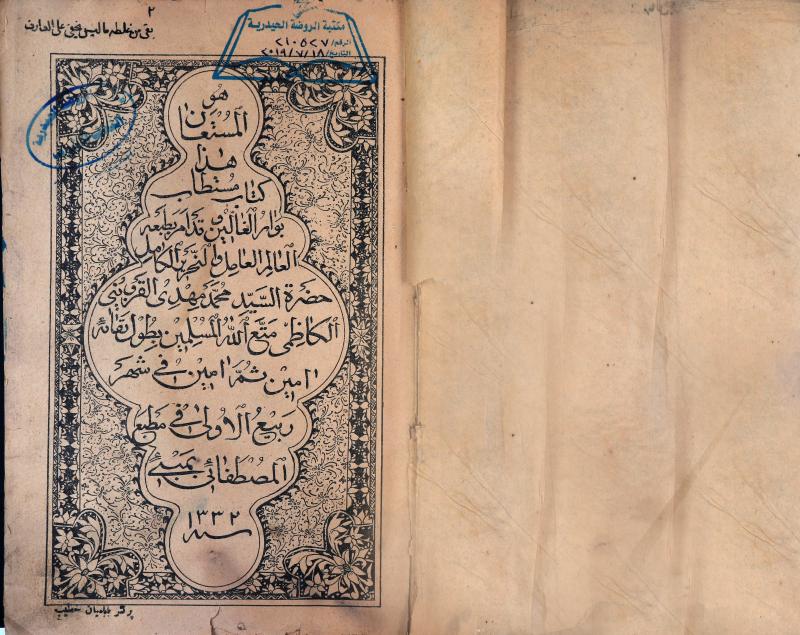 ٢
بقى من غلطه ما ليس يخفى على العارف
مكتبة الروضة الحيدرية
الرقم/ ٢١٠٥٢٧
التاريخ/ ٢٠١٩/٧/١٨
هو
المستعان
هذا
كتاب مستطاب
بوار الغالين وقد امر بطبعه
العالم العامل والنحرير الكامل
حضرة السيد محمد مهدى القزوينى
الكاظمى متع الله المسلمين بطول بقائه
امين ثم امين فى شهر
ربيع الاولى فى مطبع
المصطفائى بمبئى
سنه ١٣٣٢